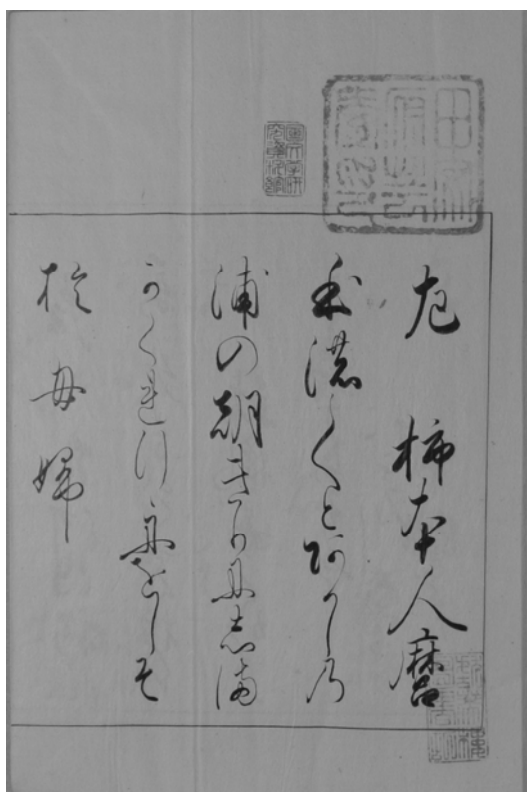 左 柿本人麿
本濃〱とあかしの
浦の朝きりに志满
かくれ行舟をしそ
於毋婦